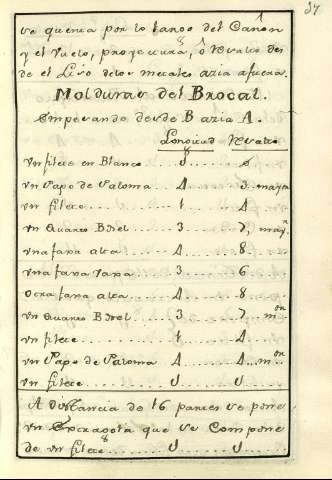 37
se quenta por lo largo del Cañon
y el Vuelo, proyectura, ô Resalte des
de el Liso delos metales azia afuera.
Molduras del Brocal.
Empezando desde B azia A.
Longitud Resalte
Vn filete en Blanco
vn Papo de Paloma 4 3 maxm
vn filete 1 4
vn Quarto Bosel 3 7, maxn
vna faxa alta 4 8
vna faxa vaxa 3 6
Otra faxa alta 4 8
vn Quarto Bosel 3 7 mon
vn filete 1 4
vn Papo de Paloma 4 4 mon
vn filete J J
A distancia de 16 partes se pone
vn que se Compone
de vn filete J J